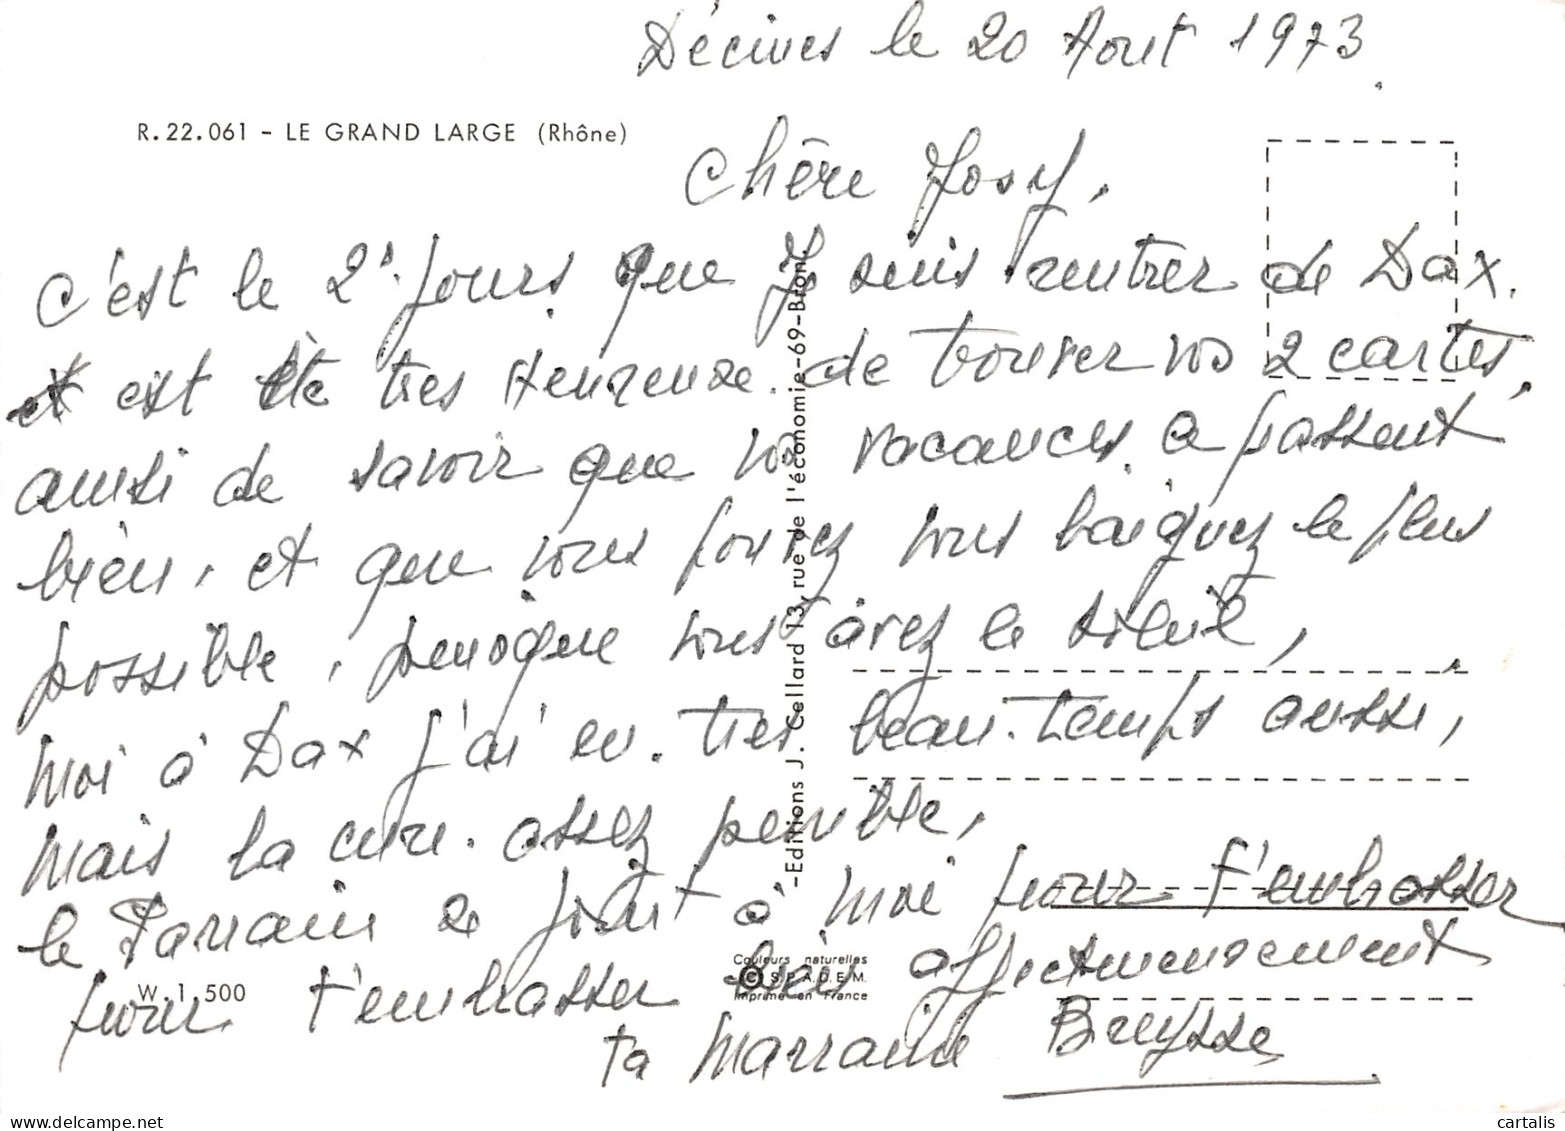 Décines le 20 Aout 1973.
R.22.061 - LE GRAND LARGE (Rhône)
Chère Josy,
C'est le 2e jours que Je suis rentrer de Dax.
et est été tres Heureuse de trouver vos 2 cartes,
ausi de savoir que vos vacances ce passent
bien, et que vous pouvez vous baignez le plus
possible, puisque vous avez le soleil,
moi à Dax j'ai eu tres beau temps aussi,
mais la cure assez penible,
le Parrain se joint à moi pour t'embrasser
pour t'embrasser bien affectueusement
ta Marraine Bruysse
-Editions J. Cellard 13, rue de l'économie-69-Bron.
Couleurs naturelles
(C) S.P.A.D.E.M.
Imprimé en France
W. 1.500
delcampe.net
cartalis